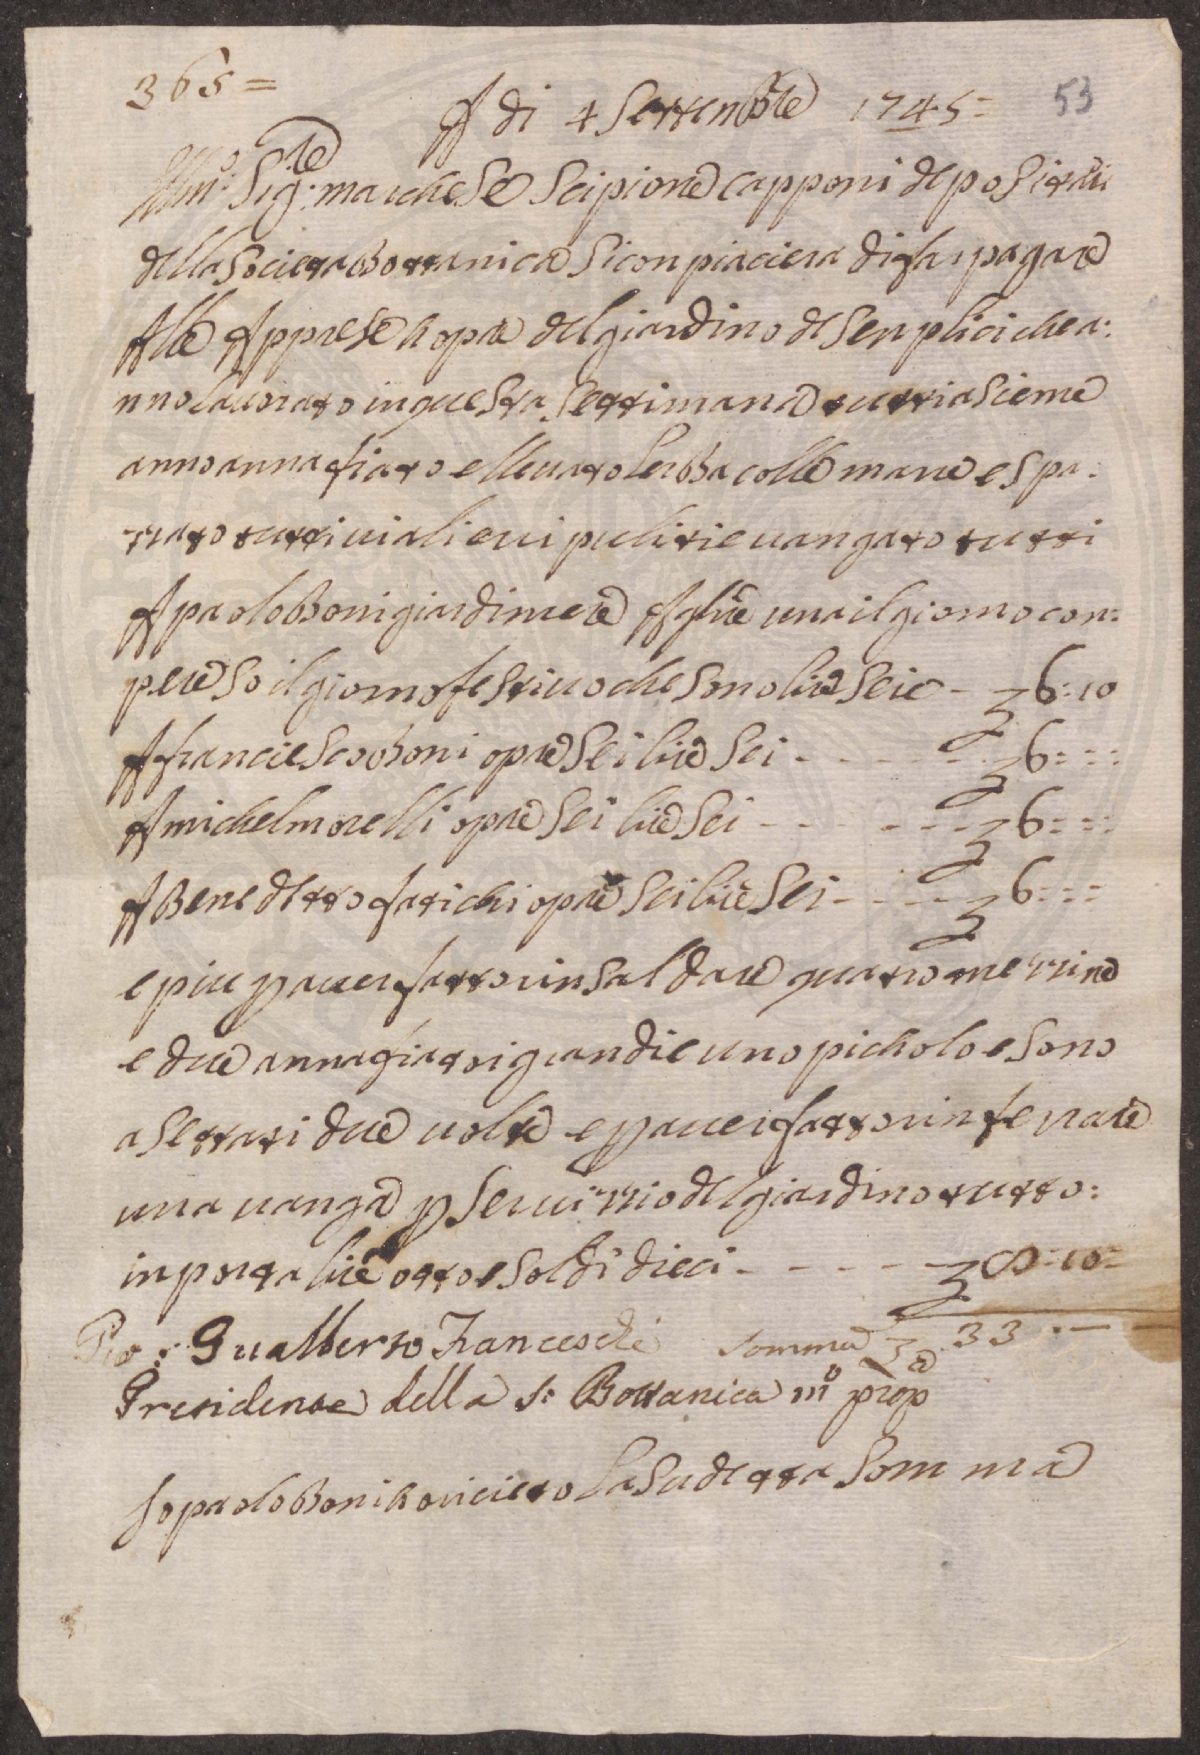 365 =
53
A di 4 Settenbre 1745 =
Illmo: Sigre: marchese Scipione capponi depositari
della Societa Bottanica Si conpiaciera di far pagare
Alle Apprese hopre del giardino de Senplici che a:
nno lavorato in questa Settimana tutti asieme
anno annafiato e llevato lerba colle mane e spa:
zzato tutti i viali e vi puliti e vangato tutti
A paolo Boni giardiniere A lire una il giorno con:
preso il giorno festivo che sono lire Seie - 6:10
A franciesco Boni opre Sei lire Sei - - - - - 6:::
A michel morelli opre Sei lire Sei - - - - - - 6:::
A Benedetto farichi opre Sei lire Sei - - - - - 6:::
e piu p aver fatto rinsaldare quatro mezzine
e due annafiatoi grandi e uno picholo e sono
a Settati due volte e p aver fatto rinferrare
una vanga p Servizzio del giardino tutto:
inporta lire otto e soldi dieci - - - - - 8:10=
Gio: Gualberto Franceschi somma 33 . —
Presidente della S: Bottanica mo propa
Io paolo Boni ho ricievto la Sudetta Somma